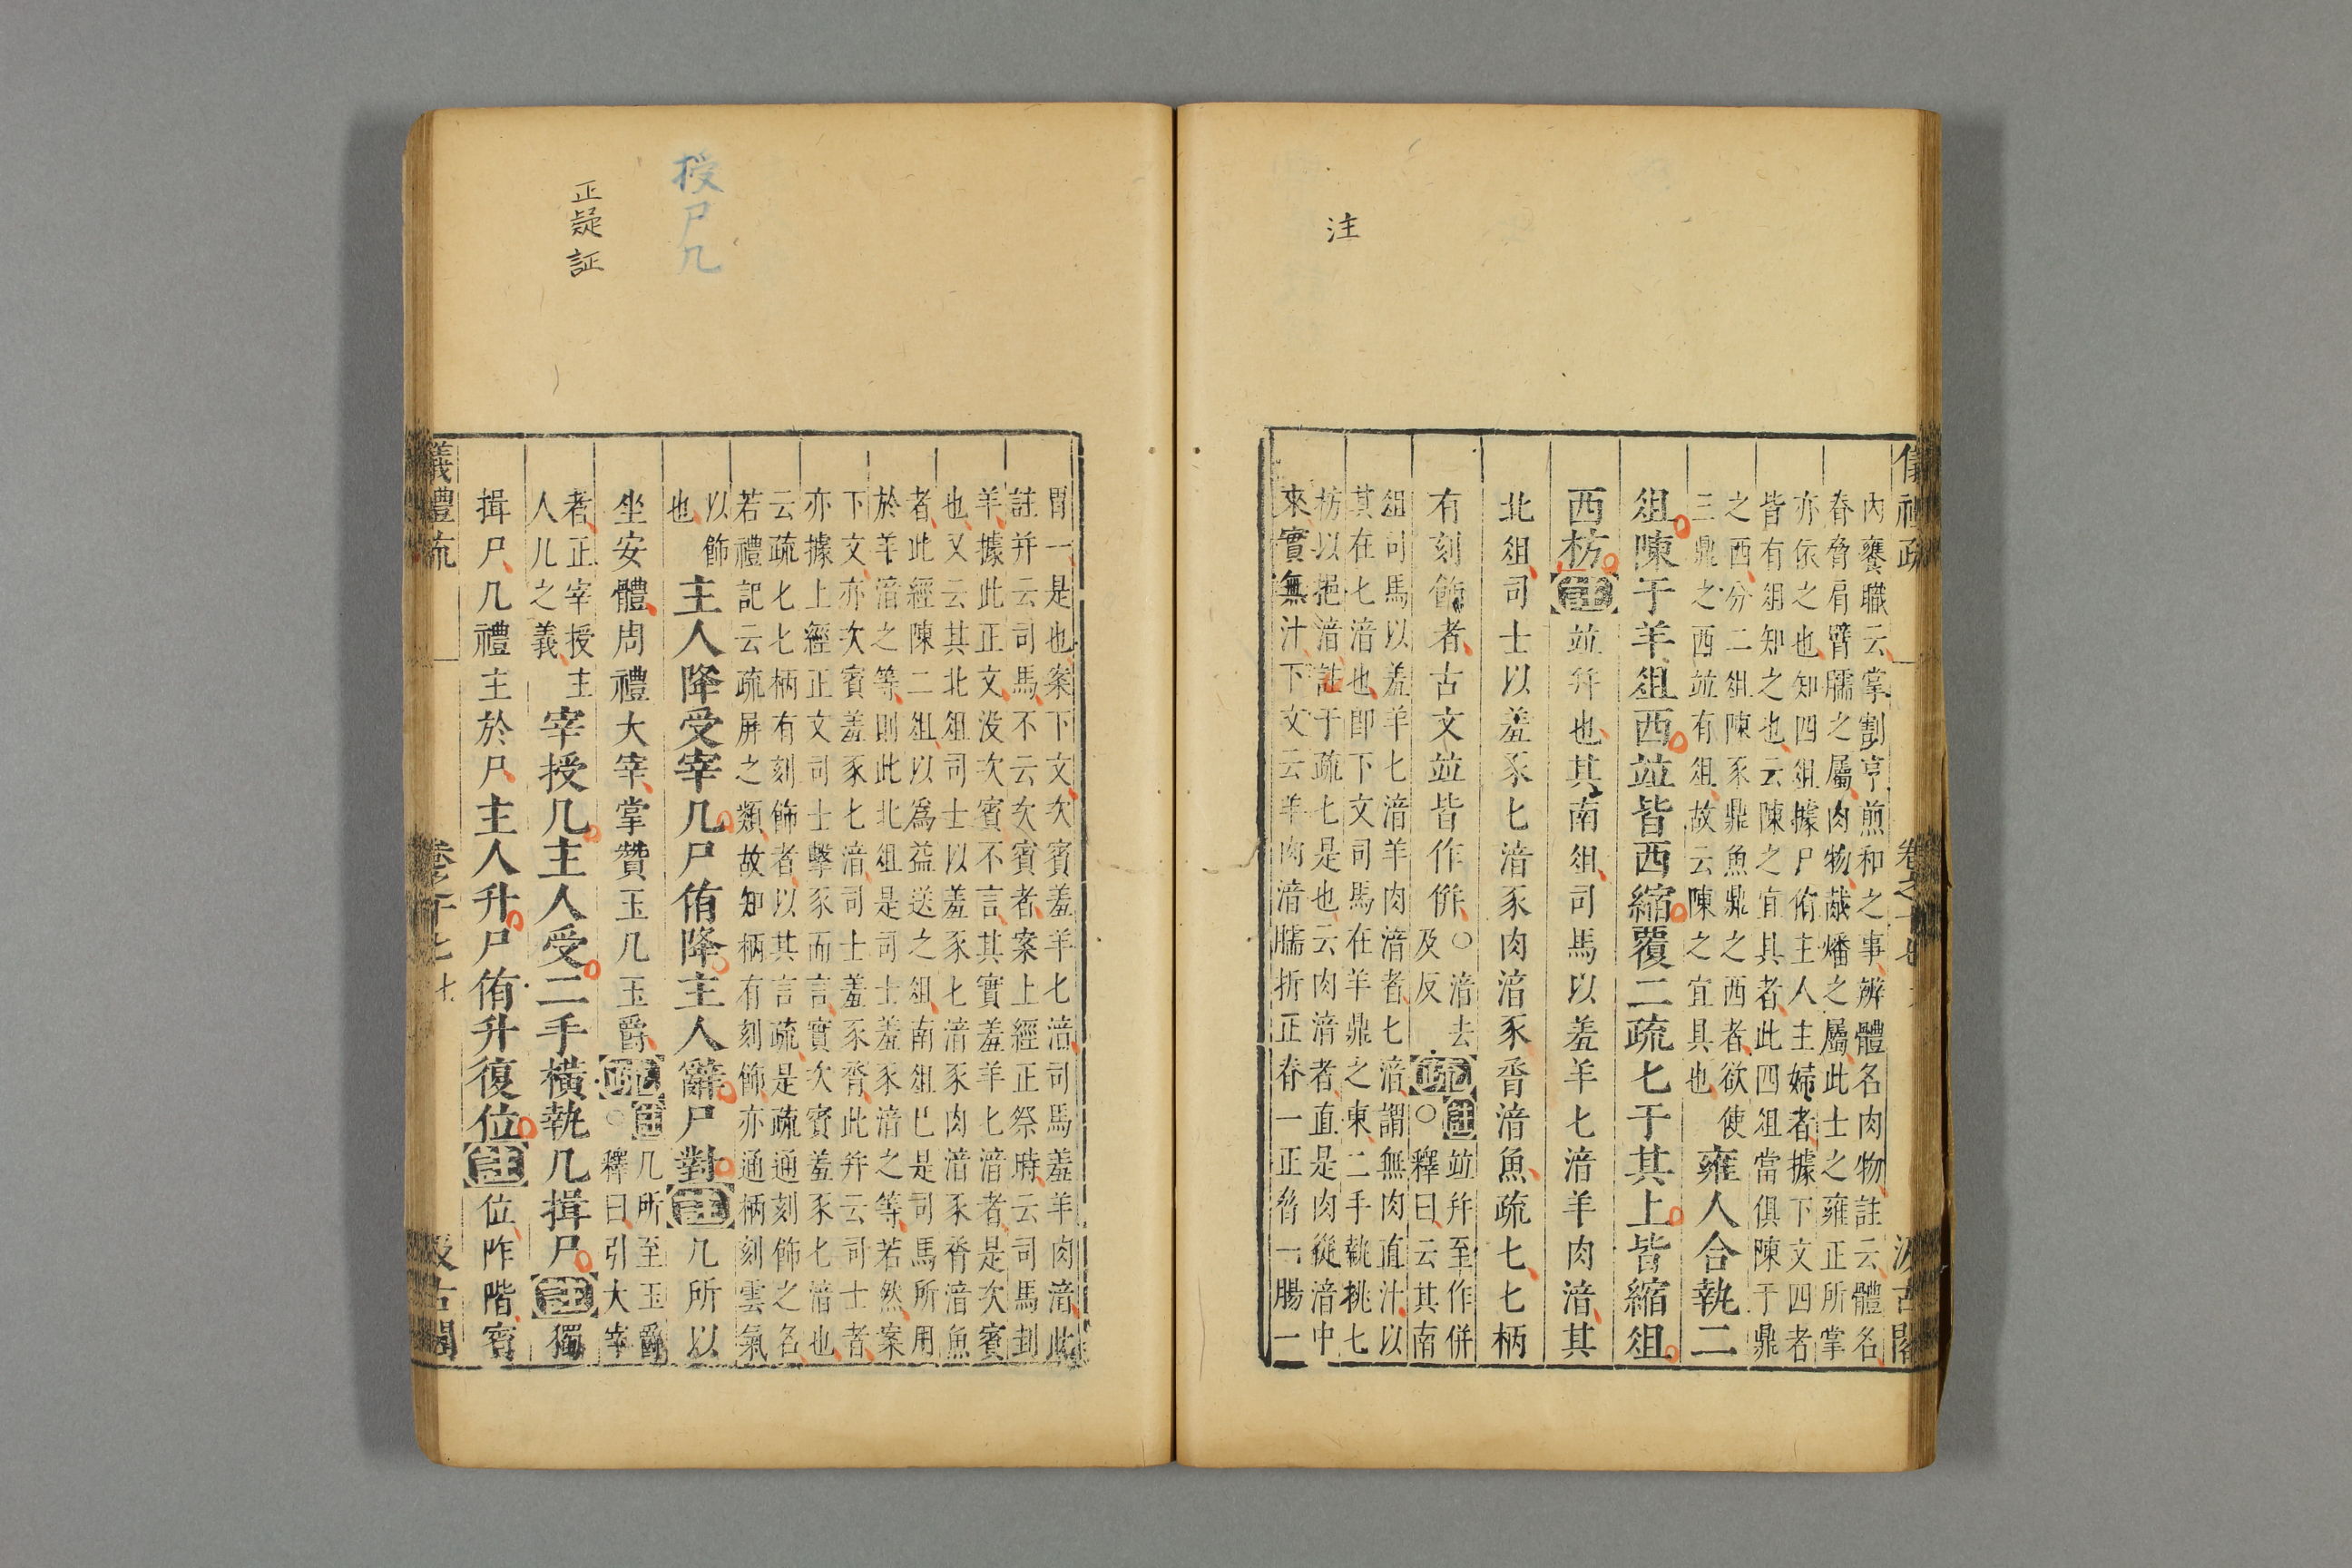 注
儀禮疏
卷之十七
汲古閣
內饔職云掌割亨煎和之事辨體名肉物註云體名
脊脅肩臂臑之屬肉物胾燔之屬此士之雍正所掌
亦依之也知四俎據尸侑主人主婦者據下文四者
皆有俎知之也云陳之宜具者此四俎當俱陳于鼎
之西分二俎陳豕鼎魚鼎之西者欲使
三鼎之西竝有俎故云陳之宜具也
雍人合執二
俎陳于羊俎西竝皆西縮覆二疏匕于其上皆縮俎
西枋註竝幷也其南俎司馬以羞羊匕湆羊肉湆其
北俎司士以羞豕匕湆豕肉湆豕脀湆魚疏匕匕柄
有刻飾者古文竝皆作併○湆去
及反
疏註竝幷至作併
○釋曰云其南
俎司馬以羞羊匕湆羊肉湆者匕湆謂無肉直汁以
其在匕湆也卽下文司馬在羊鼎之東二手執桃匕
枋以挹湆註于疏匕是也云肉湆者直是肉從湆中
來實無汁下文云羊肉湆臑折正脊一正脅一腸一
授尸几
正疑証
胃一是也案下文次賓羞羊匕湆司馬羞羊肉湆此
註幷云司馬不云次賓者案上經正祭時云司馬刲
羊據此正文沒次賓不言其實羞羊匕湆者是次賓
也又云其北俎司士以羞豕匕湆豕肉湆豕脀湆魚
者此經陳二俎以爲益送之俎南俎已是司馬所用
於羊湆之等則此北俎是司士羞豕湆之等若然案
下文亦次賓羞豕匕湆司士羞豕脀此幷云司士者
亦據上經正文司士擊豕而言實次賓羞豕匕湆也
云疏匕匕柄有刻飾者以其言疏是疏通刻飾之名
若禮記云疏屏之類故知柄有刻飾亦通柄刻雲氣
以飾
也
主人降受宰几尸侑降主人辭尸對註几所以
坐安體周禮大宰掌贊玉几玉爵疏註几所至玉爵
○釋曰引大宰
者正宰授主
人几之義
宰授几主人受二手橫執几揖尸註獨
揖尸几禮主於尸主人升尸侑升復位註位阼階賓
儀禮疏
卷之十七
汲古閣